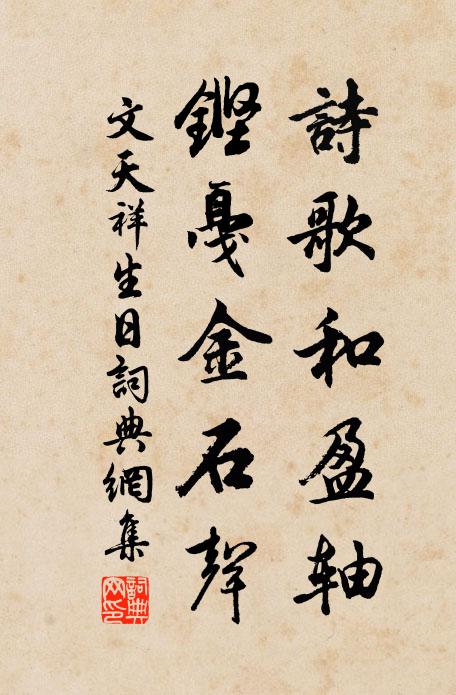 詩歌和盈軸
鏗戛金石聲
文天祥生日詞典網集
詞典網印